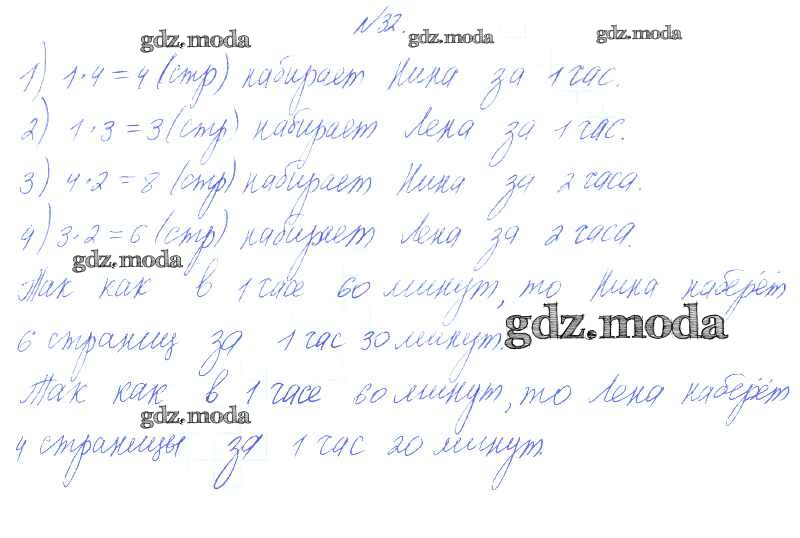 №32.
gdz.moda gdz.moda gdz.moda
1) 1·4=4 (стр) набирает Нина за 1 час.
2) 1·3=3 (стр) набирает Лена за 1 час.
3) 4·2=8 (стр) набирает Нина за 2 часа.
4) 3·2=6 (стр) набирает Лена за 2 часа.
gdz.moda
Так как в 1 часе 60 минут, то Нина наберёт
6 страниц за 1 час 30 минут.
gdz.moda
Так как в 1 часе 60 минут, то Лена наберёт
gdz.moda
4 страницы за 1 час 20 минут.